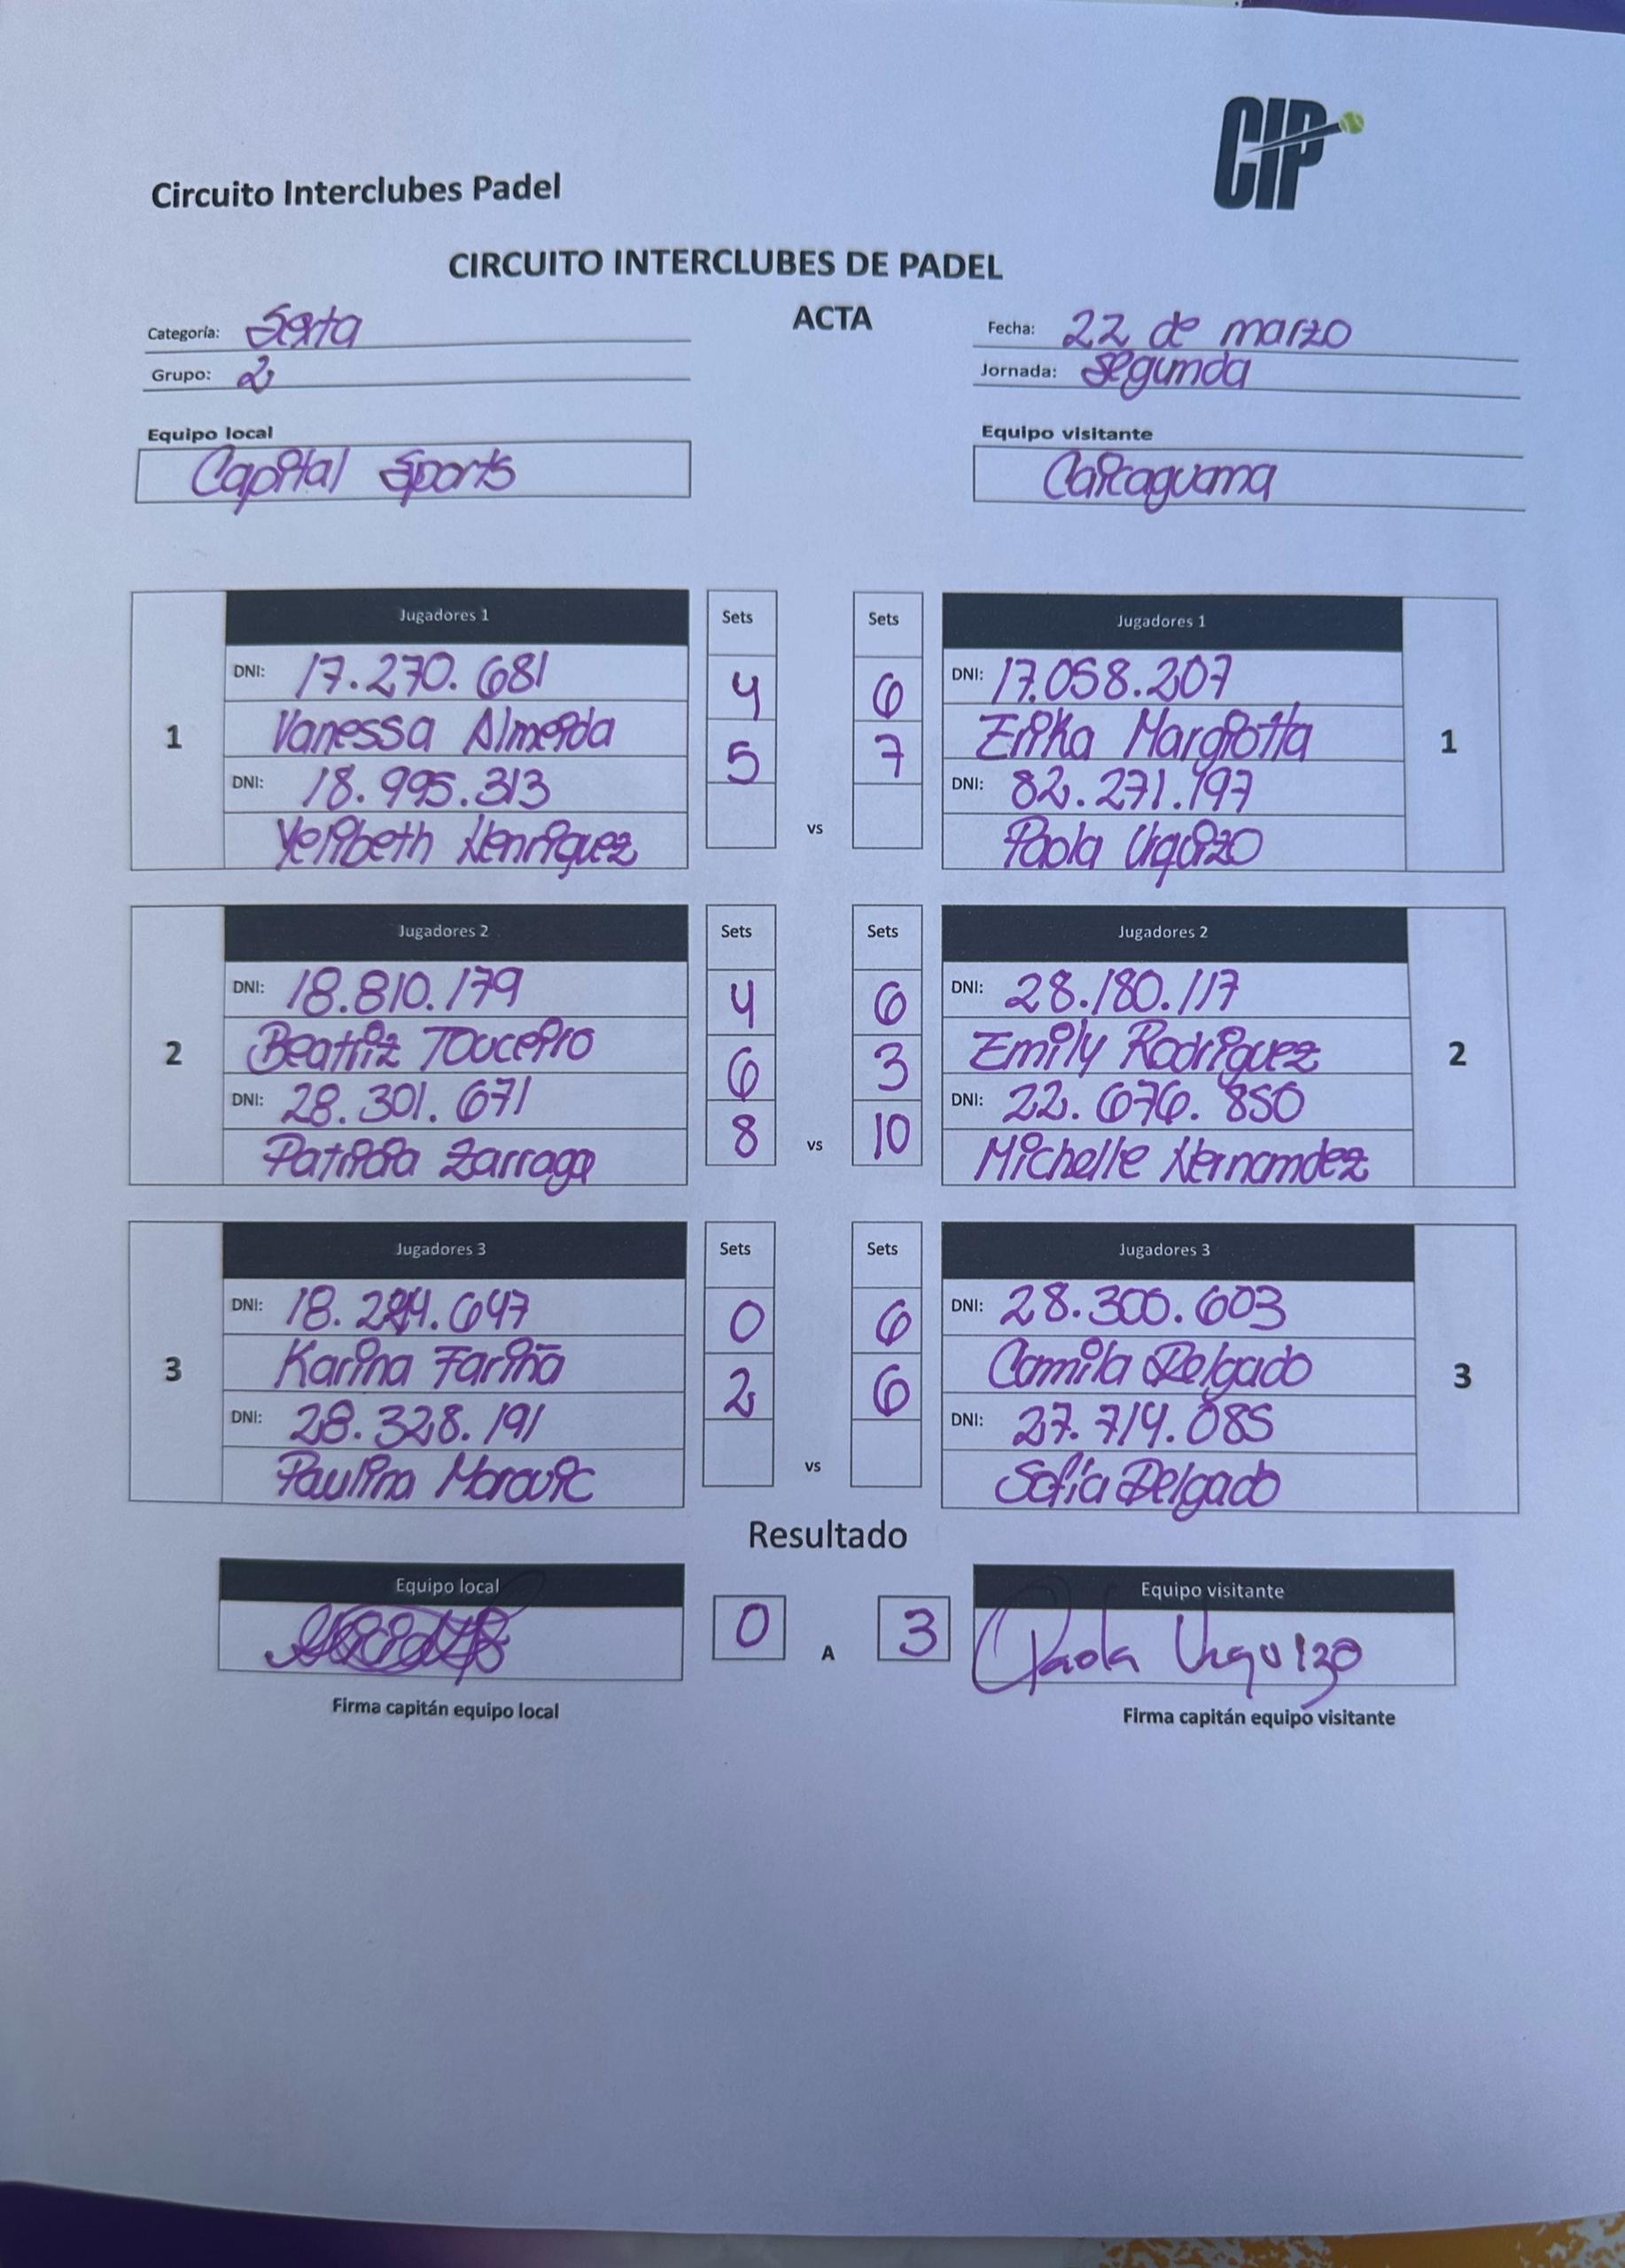 CIP
Circuito Interclubes Padel
CIRCUITO INTERCLUBES DE PADEL
ACTA
Categoría: Sexta
Fecha: 22 de marzo
Grupo: 2
Jornada: Segunda
Equipo local
Equipo visitante
Capital Sports
Caricaguana
Jugadores 1 Sets Sets Jugadores 1
DNI: 17.270.681 4 6 DNI: 17.058.207
1 Vanessa Almeida 5 7 Erika Margiotta 1
DNI: 18.995.313 DNI: 82.271.197
Yeribeth Henriquez vs Paola Urquizo
Jugadores 2 Sets Sets Jugadores 2
DNI: 18.810.179 4 6 DNI: 28.180.117
2 Beatriz Touceiro 6 3 Emily Rodriguez 2
DNI: 28.301.671 8 vs 10 DNI: 22.676.850
Patricia Zarraga Michelle Hernandez
Jugadores 3 Sets Sets Jugadores 3
DNI: 18. .647 0 6 DNI: 28.300.603
3 Karina Fariña 2 6 Camila Delgado 3
DNI: 28.328.191 DNI: 27.714.085
Paulina Maravic vs Sofía Delgado
Resultado
Equipo local Equipo visitante
0 A 3 Paola Urquizo
Firma capitán equipo local
Firma capitán equipo visitante